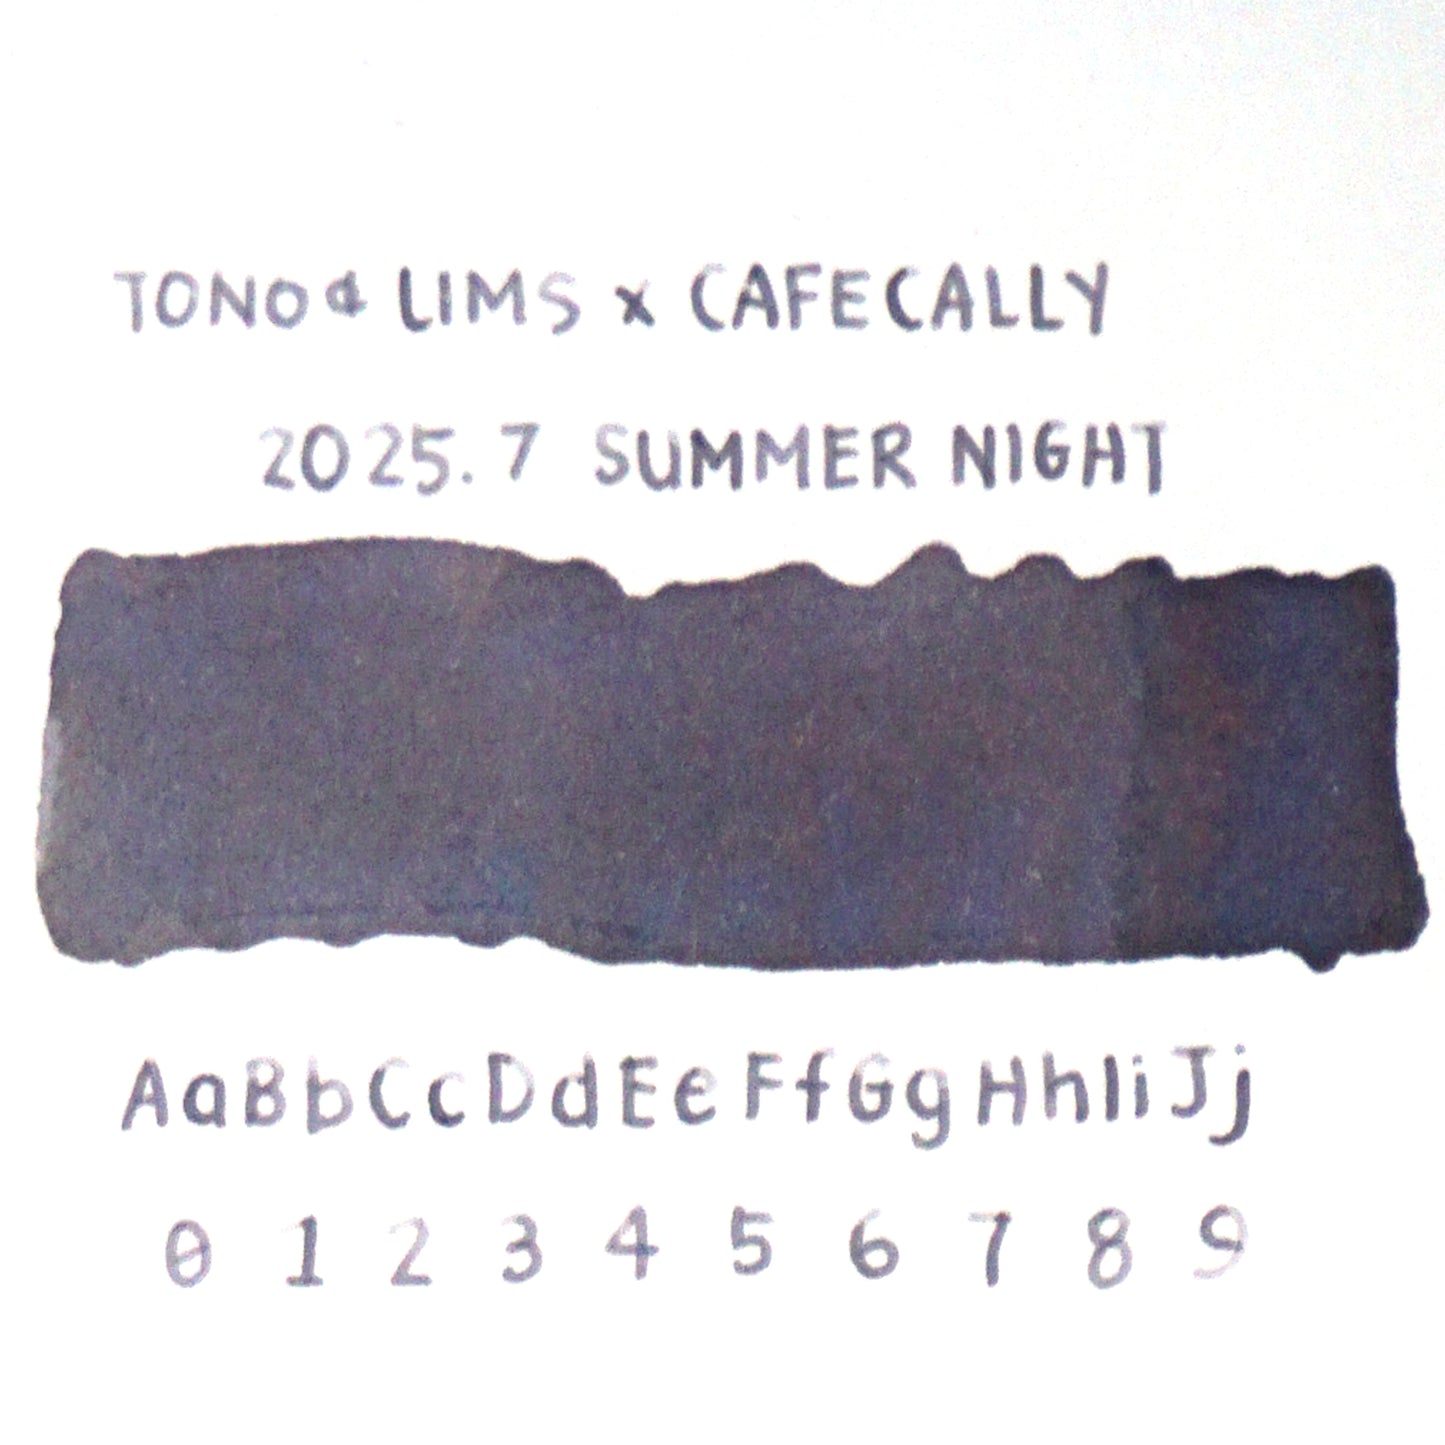 TONO & LIMS x CAFECALLY
2025.7 SUMMER NIGHT
AaBbCcDdEeFfGgHhIiJj
0 1 2 3 4 5 6 7 8 9